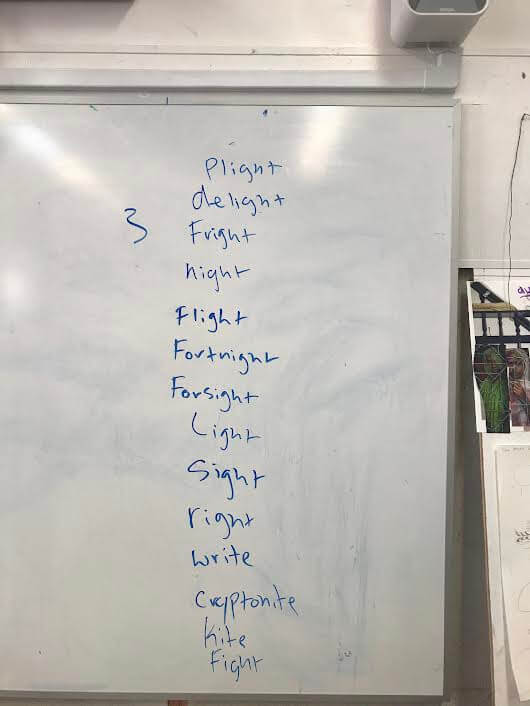 Plight
delight
3 Fright
night
Flight
Fortnight
Forsight
Light
Sight
right
write
Cryptonite
kite
Fight